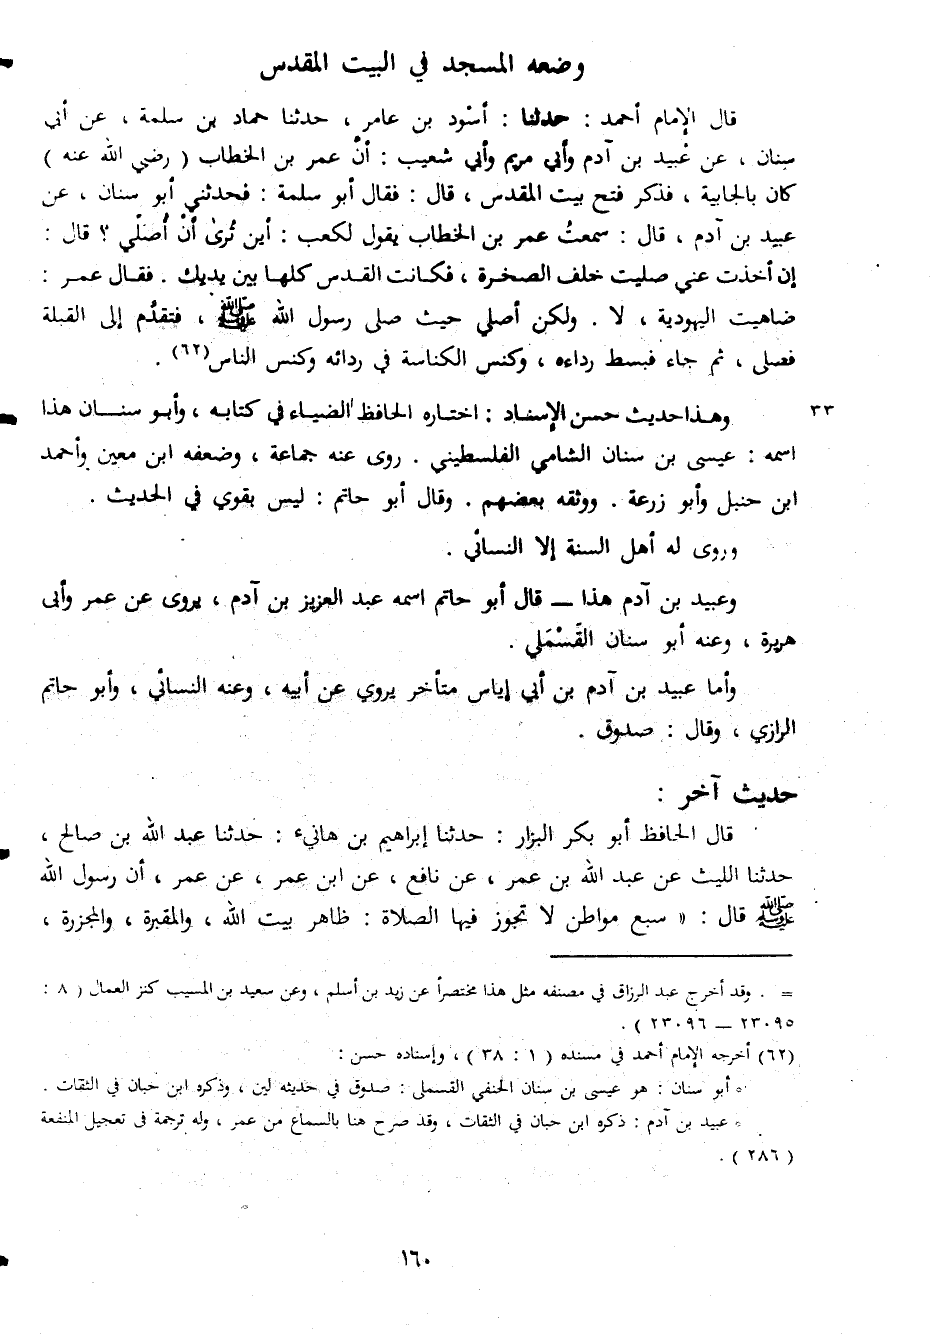 وضعه المسجد في البيت المقدس
قال الإمام أحمد : حدثنا : أسْود بن عامر ، حدثنا حماد بن سلمة ، عن أبي
سنان ، عن عُبيد بن آدم وأبي مريم وأبي شعيب : أنَّ عمر بن الخطاب ( رضي الله عنه )
كان بالجابية ، فذكر فتح بيت المقدس ، قال : فقال أبو سلمة : فحدثني أبو سنان ، عن
عبيد بن آدم ، قال : سمعتُ عمر بن الخطاب يقول لكعب : أين تُرىٰ أنْ أُصلّي ؟ قال :
إن أخذت عني صليت خلف الصخرة ، فكانت القدس كلها بين يديك . فقال عمر :
ضاهيت اليهودية ، لا . ولكن أصلي حيث صلى رسول الله ﷺ ، فتقدَّم إلى القبلة
فصلى ، ثم جاء فبسط رداءه ، وكنس الكناسة في ردائه وكنس الناس(٦٢) .
٣٣ وهذا حديث حسن الإسناد : اختاره الحافظ الضياء في كتابه ، وأبو سنان هذا
اسمه : عيسى بن سنان الشامي الفلسطيني . روى عنه جماعة ، وضعفه ابن معين وأحمد
ابن حنبل وأبو زرعة . ووثقه بعضهم . وقال أبو حاتم : ليس بقوي في الحديث .
وروى له أهل السنة إلا النسائي .
وعبيد بن آدم هذا ــ قال أبو حاتم اسمه عبد العزيز بن آدم ، يروى عن عمر وأبى
هريرة ، وعنه أبو سنان القَسْمَلي .
وأما عبيد بن آدم بن أبي إياس متأخر يروي عن أبيه ، وعنه النسائي ، وأبو حاتم
الرازي ، وقال : صدوق .
حديث آخر :
قال الحافظ أبو بكر البزار : حدثنا إبراهيم بن هانيء : حدثنا عبد الله بن صالح ،
حدثنا الليث عن عبد الله بن عمر ، عن نافع ، عن ابن عمر ، عن عمر ، أن رسول الله
ﷺ قال : « سبع مواطن لا تجوز فيها الصلاة : ظاهر بيت الله ، والمقبرة ، والمجزرة ،
= . وقد أخرج عبد الرزاق في مصنفه مثل هذا مختصراً عن زيد بن أسلم ، وعن سعيد بن المسيب كنز العمال ( ٨ :
٢٣٠٩٥ ــ ٢٣٠٩٦ ) .
(٦٢) أخرجه الإمام أحمد في مسنده ( ١ : ٣٨ ) ، وإسناده حسن :
° أبو سنان : هو عيسى بن سنان الحنفي القسملى : صدوق في حديثه لين ، وذكره ابن حبان في الثقات .
° عبيد بن آدم : ذكره ابن حبان في الثقات ، وقد صرح هنا بالسماع من عمر ، وله ترجمة فى تعجيل المنفعة
( ٢٨٦ ) .
١٦٠